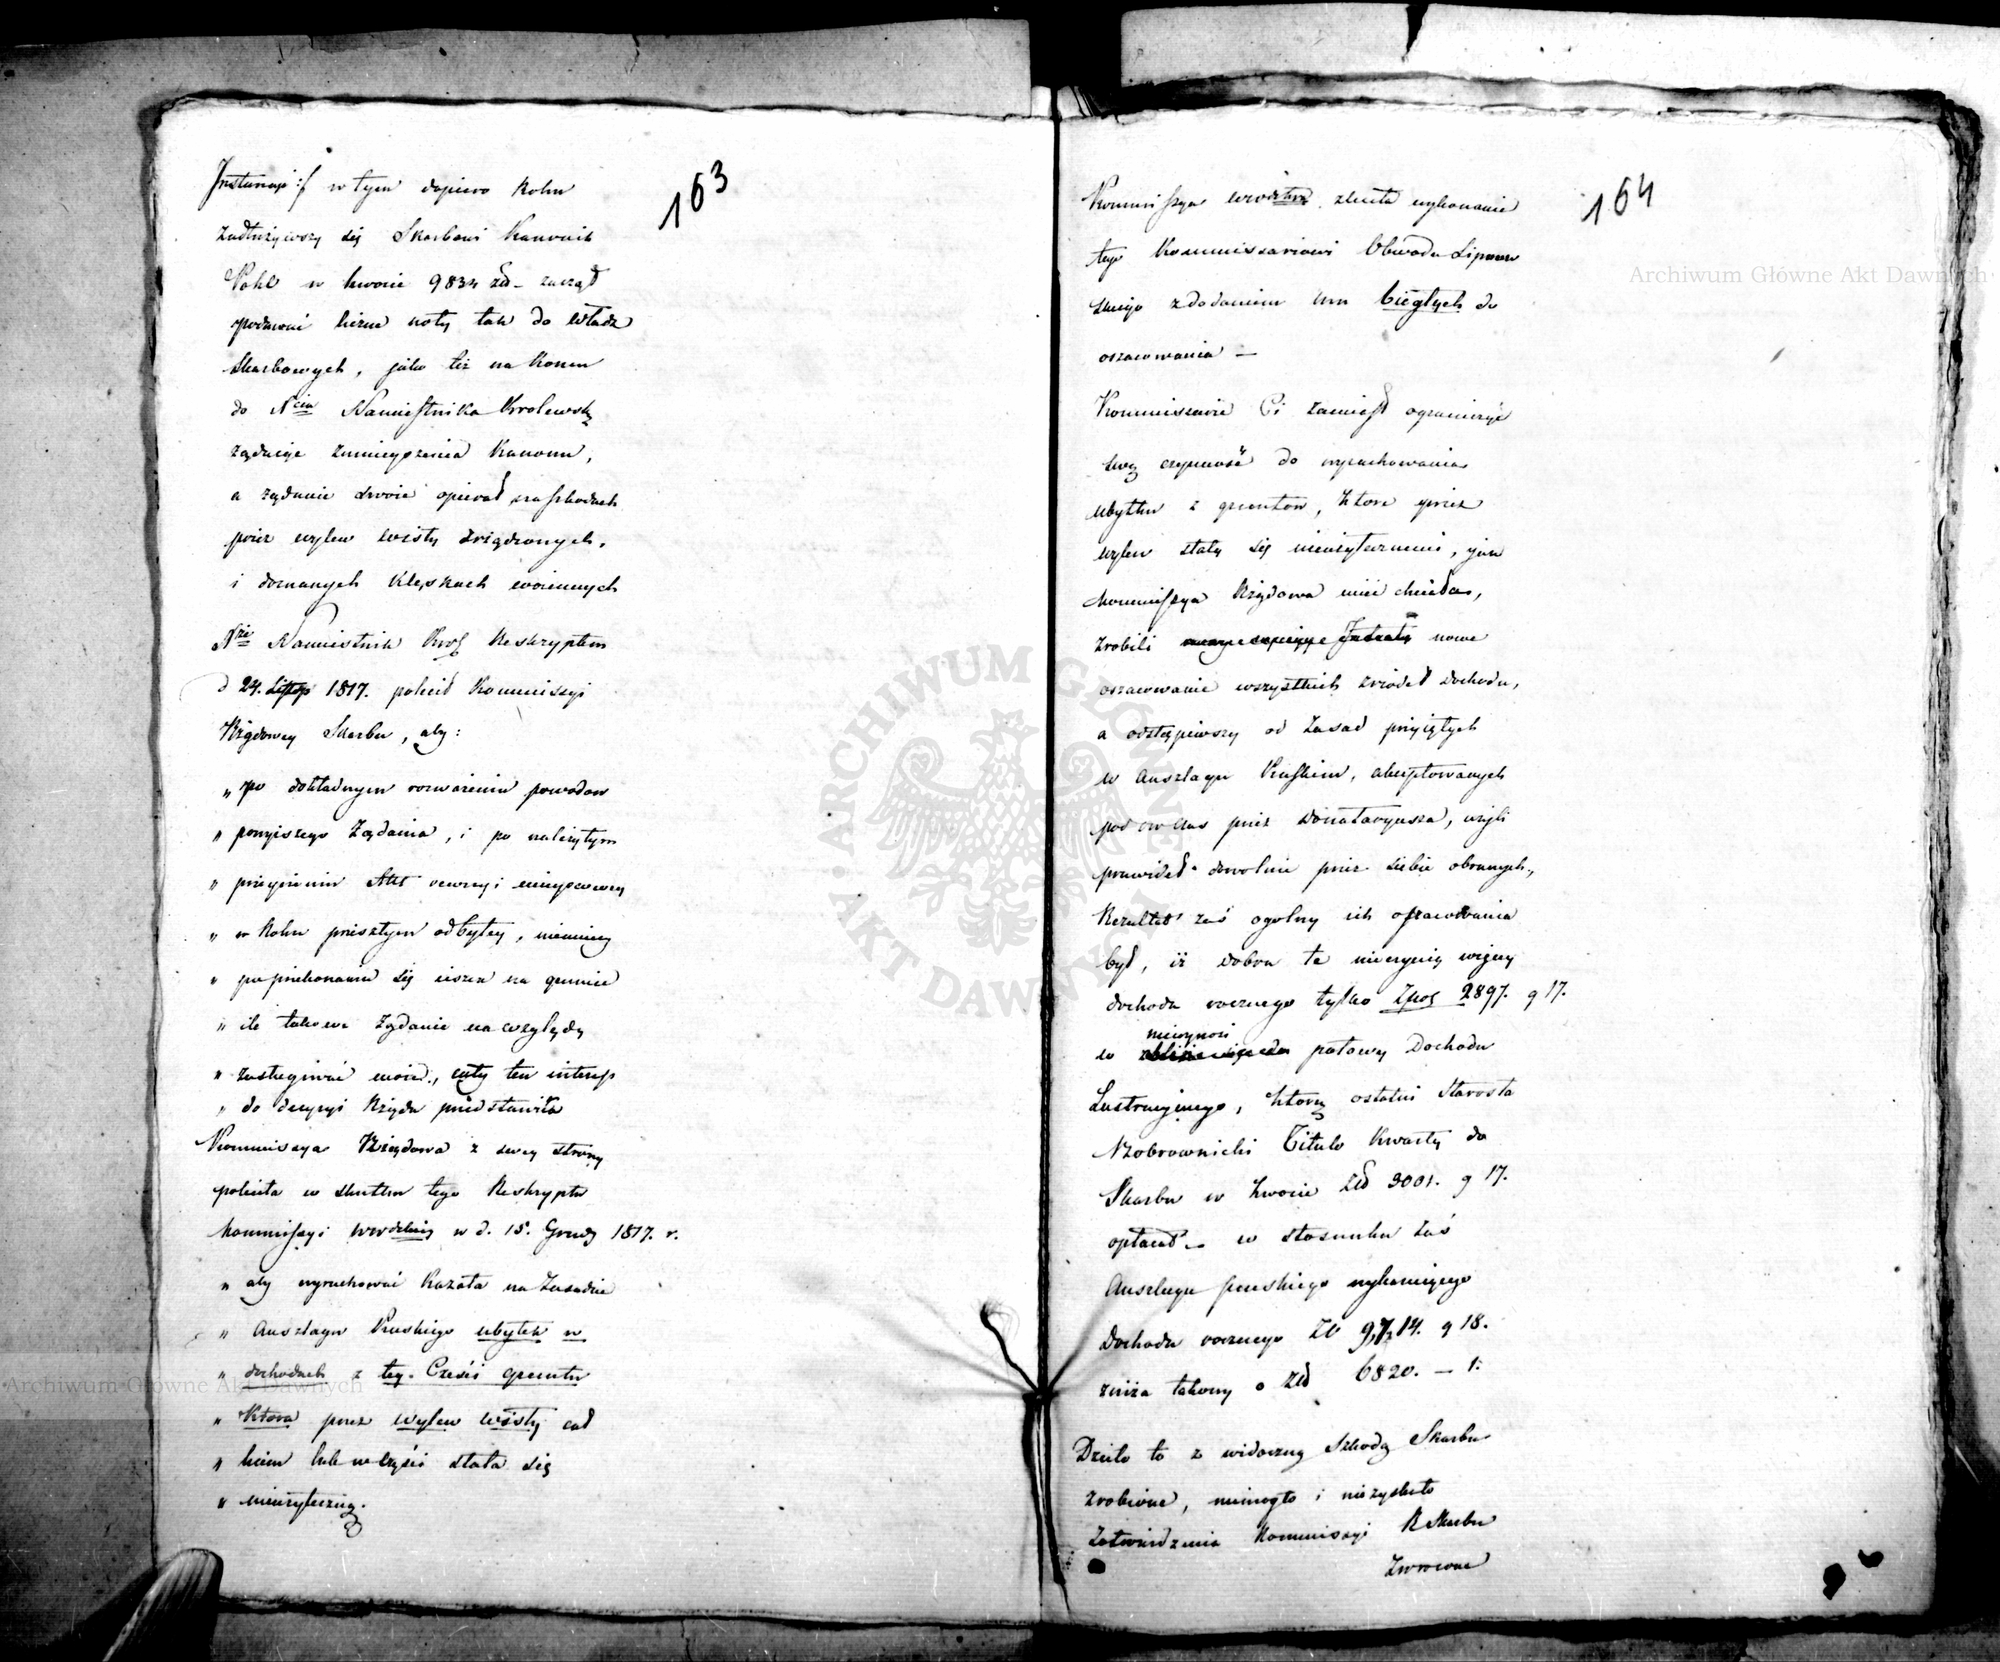 163
w tym dopiero Roku
Zadłużywszy się Skarbowi Kanonik
Pohl w kwocie 9834 zł – zaczął
podawać liczne noty tak do Władz
Skarbowych, jako też na Koncu
do Ncia Namiestnika Krolewsk
żądaiąc zmnieyszenia Kanonu,
a żądanie swoie opierał na szkodach
przez wylew wisły zrządzonych,
i doznanych klęskach woiennych
Nże Namiestnik Krol Reskryptem
d 24. Listop 1817. polecił Kommissyi
Rządowey Skarbu, aby:
„ po dokładnym rozważeniu powodow
„ powyższego Żądania, i po należytym
„ przeyrzeniu Akt rewizyi mieyscowey
„ w Roku przeszłym odbytey, niemniey
„ po przekonaniu się ieszcze na gruncie
„ ile takowe żądanie na względy
„ zasługiwać może, cały ten interess
„ do decyzyi Rządu przedstawiła
Kommissya Rządowa z swey strony
poleciła w skutku tego Reskryptu
Kommissyi Wwodzkiey w d. 15. Grud 1817. r.
„ aby wyrachować kazała na Zasadzie
„ Anszlagu Pruskiego ubytek w
„ dochodach z tey. Części gruntu
„ Ktora przez wylew wisły cał
„ kiem lub w części stała się
„ nieużyteczną.
164
Kommissya Wwodzka zleciła wykonanie
tego Kommissarzowi Obwodu Lipnow
skiego z dodaniem mu biegłych do
oszacowania –
Kommissarze Ci zamiast ograniczyć
swą czynność do wyrachowania
ubytku z gruntow, ktore przez
wylew stały się nieużytecznemi, jak
Kommissya Rządowa mieć chciała,
zrobili nowe
oszacowanie wszystkich zrzodeł dochodu,
a odstąpiwszy od Zasad przyiętych
w Anszlagu Pruskim, akceptowanych
podowczas przez Donataryusza, użyli
prawideł dowolnie przez siebie obranych,
Rezultat zaś ogolny ich oszacowania
był, iż dobra te nieczynią więcey
dochodu rocznego tylko Złpol 2897. g 17.
niewynosi
w połowy Dochodu
Lustracyinego, ktorą ostatni Starosta
Titulo Kwarty do
Skarbu w kwocie Zł 3001. g 17.
opłacał – w stosunku zaś
Anszlagu pruskiego wykazuiącego
Dochodu rocznego Zł 9,714. g 18.
zniża takowy o Zł 6820. – 1.
Dzieło to z widoczną Szkodą Skarbu
zrobione, niemogło i niezyskało
Zatwierdzenia Kommissyi R Skarbu
Zwrocone
Archiwum Główne Akt Dawnych
Archiwum Główne Akt Dawnych
ARCHIWUM GŁÓWNE AKT DAWNYCH